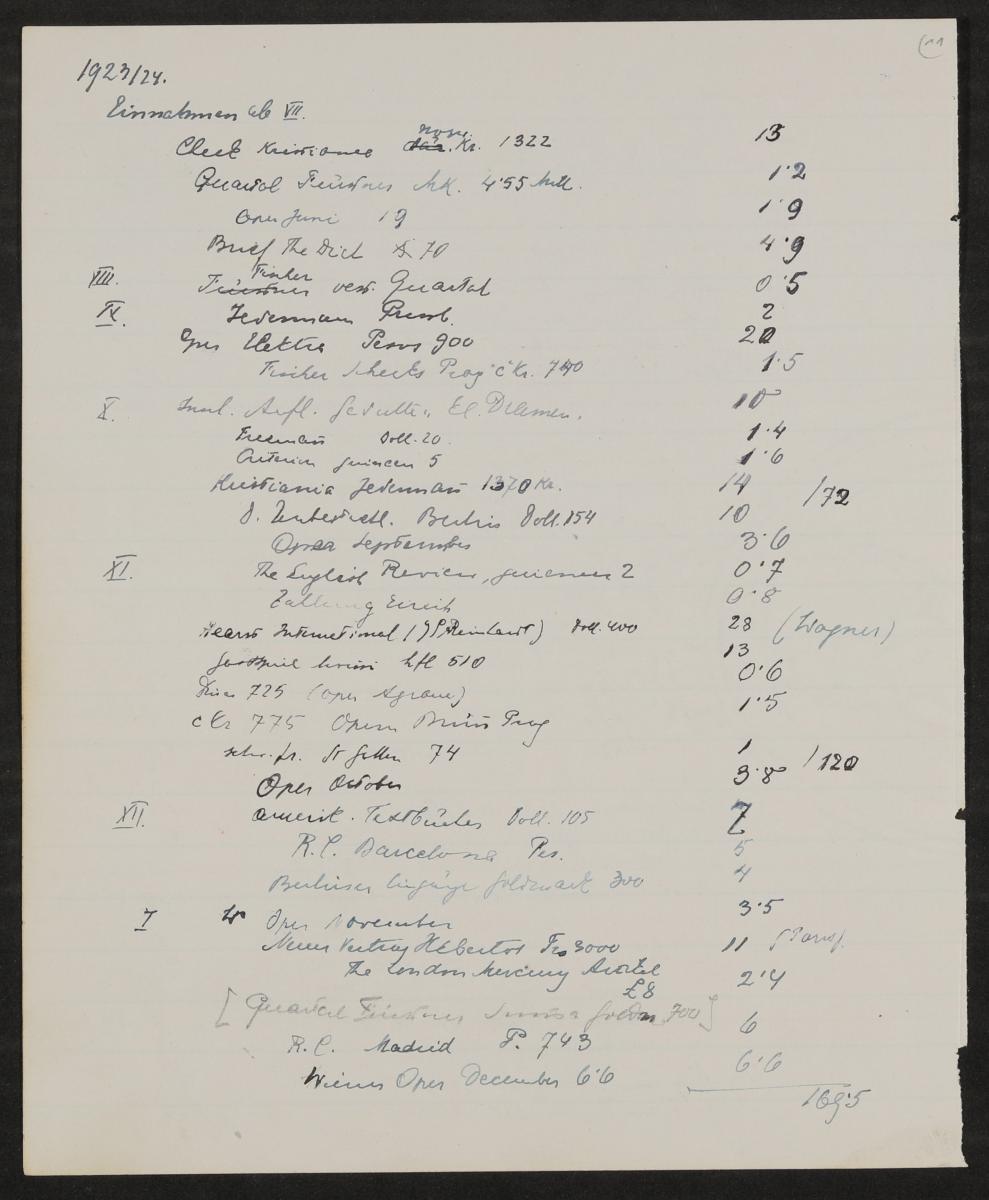 1923/24.
Einnahmen ab VII.
Check Kristiania norw. Kr. 1322 13
Quartal Fürstner MK. 4·55 Mill. 1·2
Oper Juni 19 1·9
Brief The Dial $ 70 4·9
VIII. Fischer Quartal 0·5
IX. Jedermann 2
Elektra Pesos 900 20
Fischer Schecks Prag čKr. 740 1·5
X. Insel. Aufl. 10
Freeman Doll. 20. 1·4
Criterion guineen 5 1·6
Kristiania Jedermann 1370 Kr. 14 /72
Berlin Doll. 154 10
Oper September 3·6
XI. The English Review, guineen 2 0·7
Zahlung 0·8
Hearst International (Reinhardt) Doll. 400 28 (Wagner)
hfl 510 13
725 (Oper Agram) 0·6
cKr 775 Opern Brünn Prag 1·5
schw. fr. St Gallen 74 1
Oper October 3·8 /120
XII. amerik. Textbücher Doll. 105 7
R.C. Barcelona Pes. 5
Berliner Eingänge Goldmark 300 4
I Oper November 3·5
Neuer Vertrag Hébertot Frs 3000 11
The London Mercury Article
£8 2·4
[Quartal Fürstner 700]
R.C. Madrid P. 743 6
Wiener Oper December 6·6 6·6
169·5